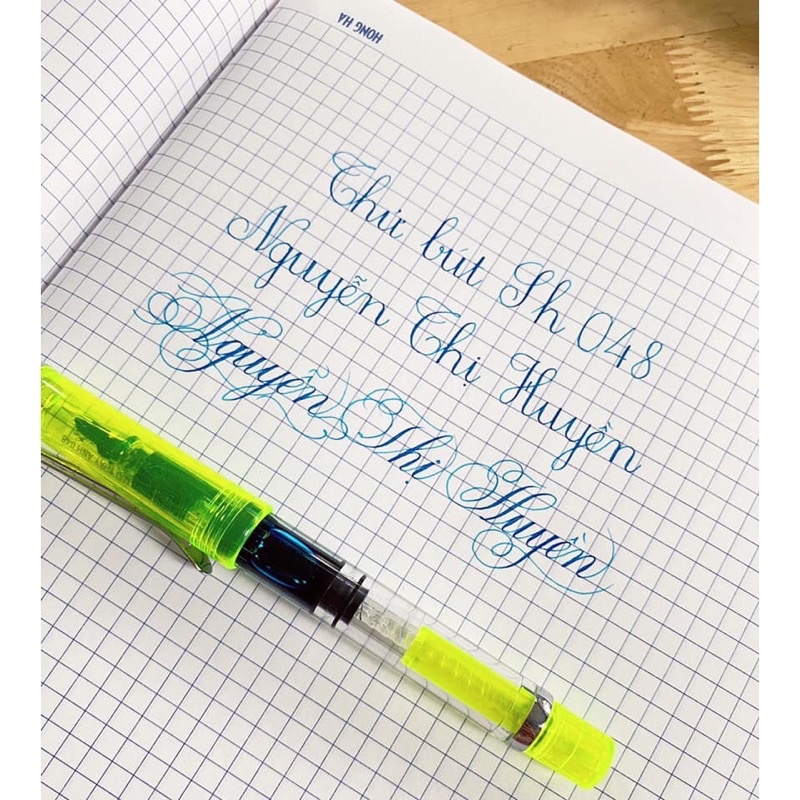 HONG HA
Thử bút Sh 048
Nguyễn Thị Huyền
Nguyễn Thị Huyền